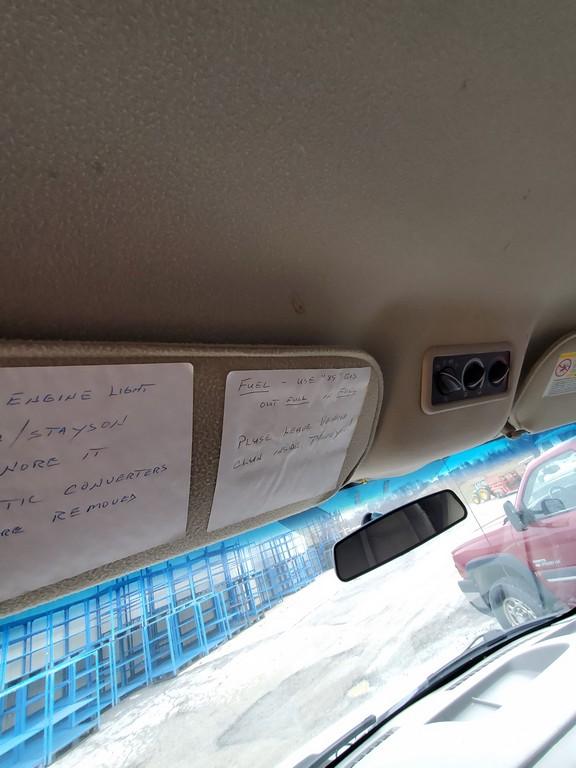 ENGINE LIGHT
/STAYSON
NORE IT
TIC CONVERTERS
RE REMOVED
FUEL - USE "85" GAS
OUT FULL IN FULL
PLUSE LEAVE VEHICLE
CLEAN INSIDE